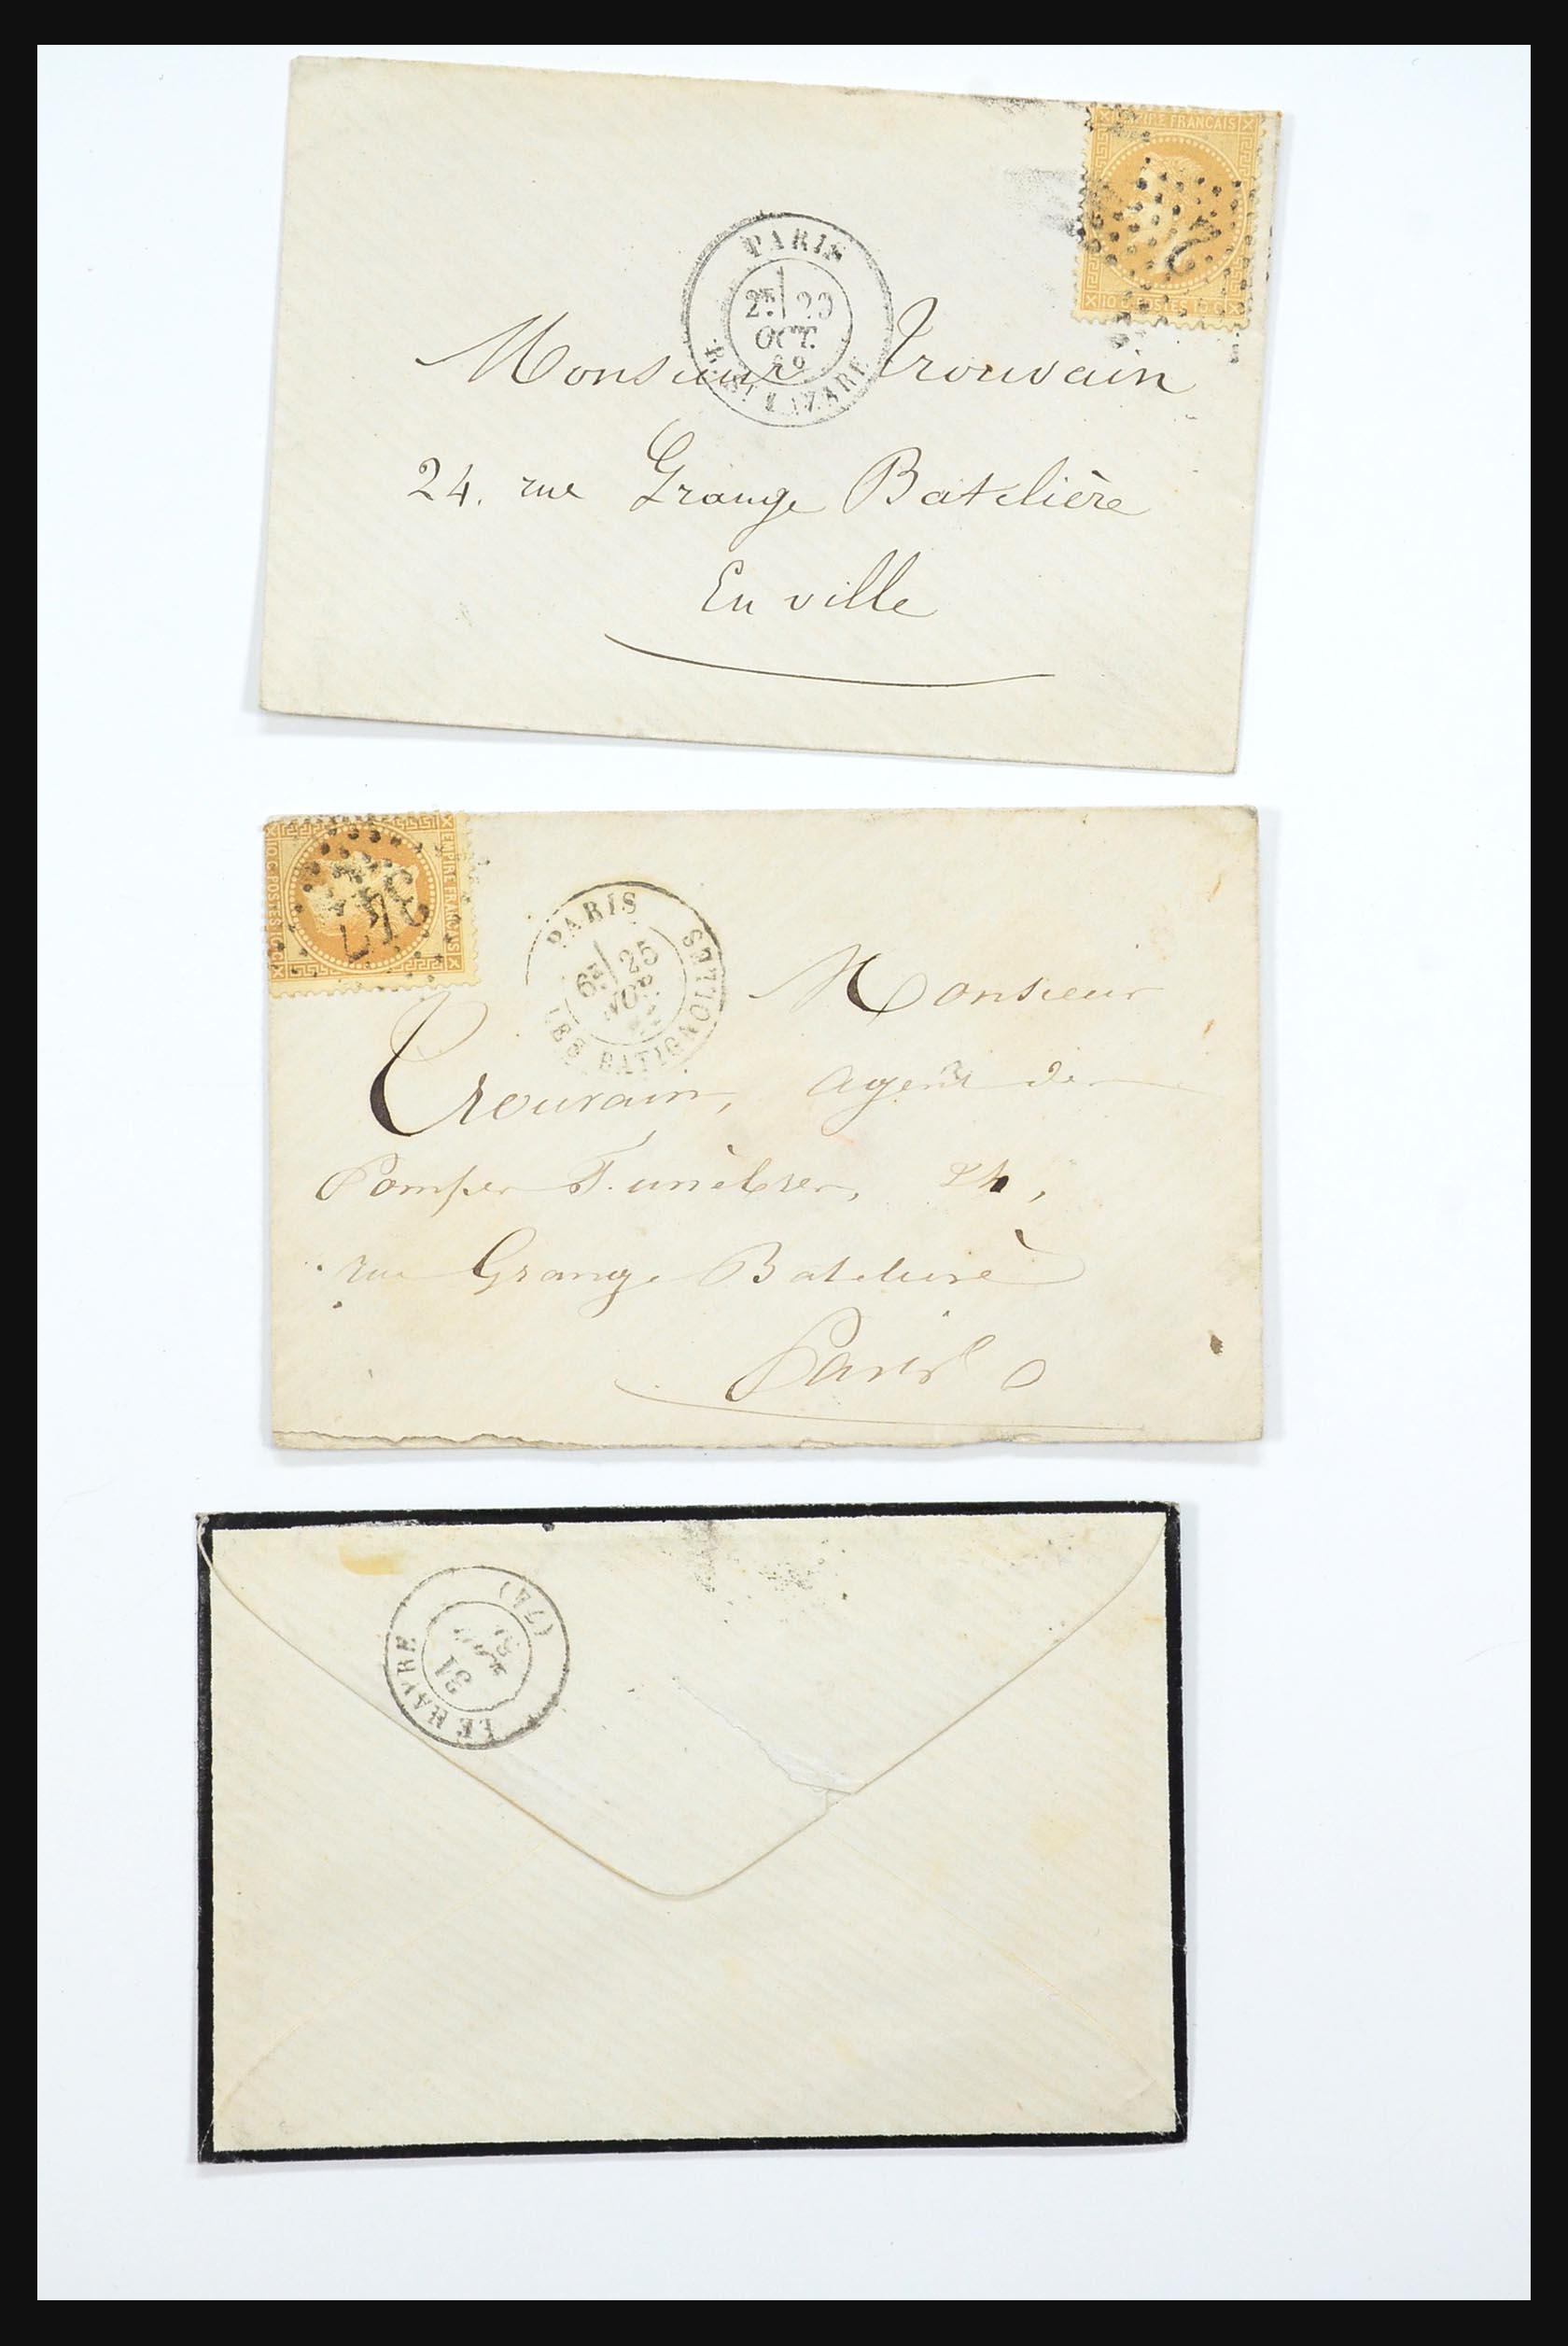 EMPIRE FRANCAIS
2
10 C. POSTES 10 C.
PARIS
2E 29
OCT.
69
R. ST LAZARE
Monsieur Trouvain
24. rue Grange Batelière
En ville
EMPIRE FRANCAIS
347
10 C. POSTES 10 C.
PARIS
6E 25
NOV.
LES BATIGNOLLES
Monsieur
Trouvain, agent des
Pompes Funèbres, 24,
rue Grange Batelière
Paris
(74)
31
LE HAVRE